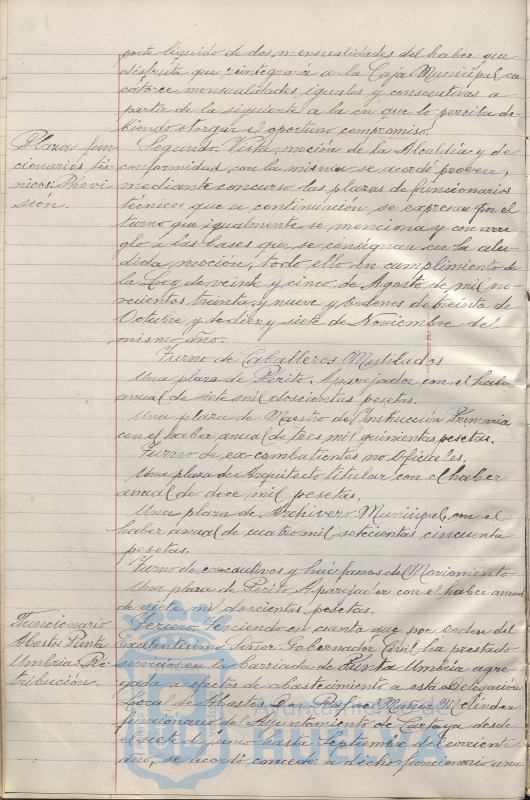 porte líquido de dos mensualidades del haber que
disfruta que reintegrará a la Caja Municipal en
catorce mensualidades iguales y consecutivas a
partir de la siguiente a la en que lo perciba de-
biendo otorgar el oportuno compromiso.
Plazas fun-
cionarios téc-
nicos. Provi-
sión.
Segundo. Vista moción de la Alcaldía y de
conformidad con la misma se acordó proveer,
mediante concurso las plazas de funcionarios
técnicos que a continuación se expresan por el
turno que igualmente se menciona y con arre-
glo a las bases que se consignan en la alu-
dida moción, todo ello en cumplimiento de
la Ley de veinte y cinco de Agosto de mil no-
vecientos treinta y nueve y Ordenes de treinta de
Octubre y de diez y siete de Noviembre del
mismo año.
Turno de Caballeros Mutilados
Una plaza de Perito Aparejador con el haber
anual de siete mil doscientas pesetas.
Una plaza de Maestro de Instrucción Primaria
con el haber anual de tres mil quinientas pesetas.
Turno de ex-combatientes no Oficiales.
Una plaza de Arquitecto titular con el haber
anual de doce mil pesetas.
Una plaza de Archivero Municipal, con el
haber anual de cuatro mil setecientas cincuenta
pesetas.
Turno de ex-cautivos y huérfanos del Movimiento
Una plaza de Perito Aparejador con el haber anual
de siete mil doscientas pesetas.
Funcionario
Abastos Punta
Umbría. Re-
tribución.
Tercero. Teniendo en cuenta que por orden del
Excelentísimo Señor Gobernador Civil ha prestado
servicios en la barriada de Punta Umbría agre-
gada a efectos de abastecimiento a esta Delegación
Local de Abastos Don Rafael Muñoz
funcionario del Ayuntamiento de Cartaya desde
el siete de junio hasta Septiembre del corriente
año, se acordó conceder a dicho funcionario una
HUELVA